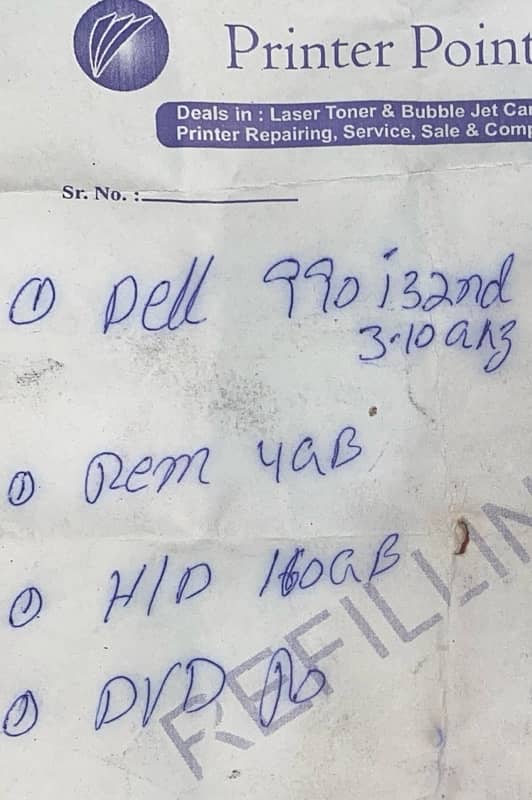 Printer Point
Deals in : Laser Toner & Bubble Jet Car
Printer Repairing, Service, Sale & Comp
Sr. No. :
① Dell 990 i3 2nd
3.10 GHz
① Rem 4GB
① H/D 160GB
① DVD No
REFILLIN